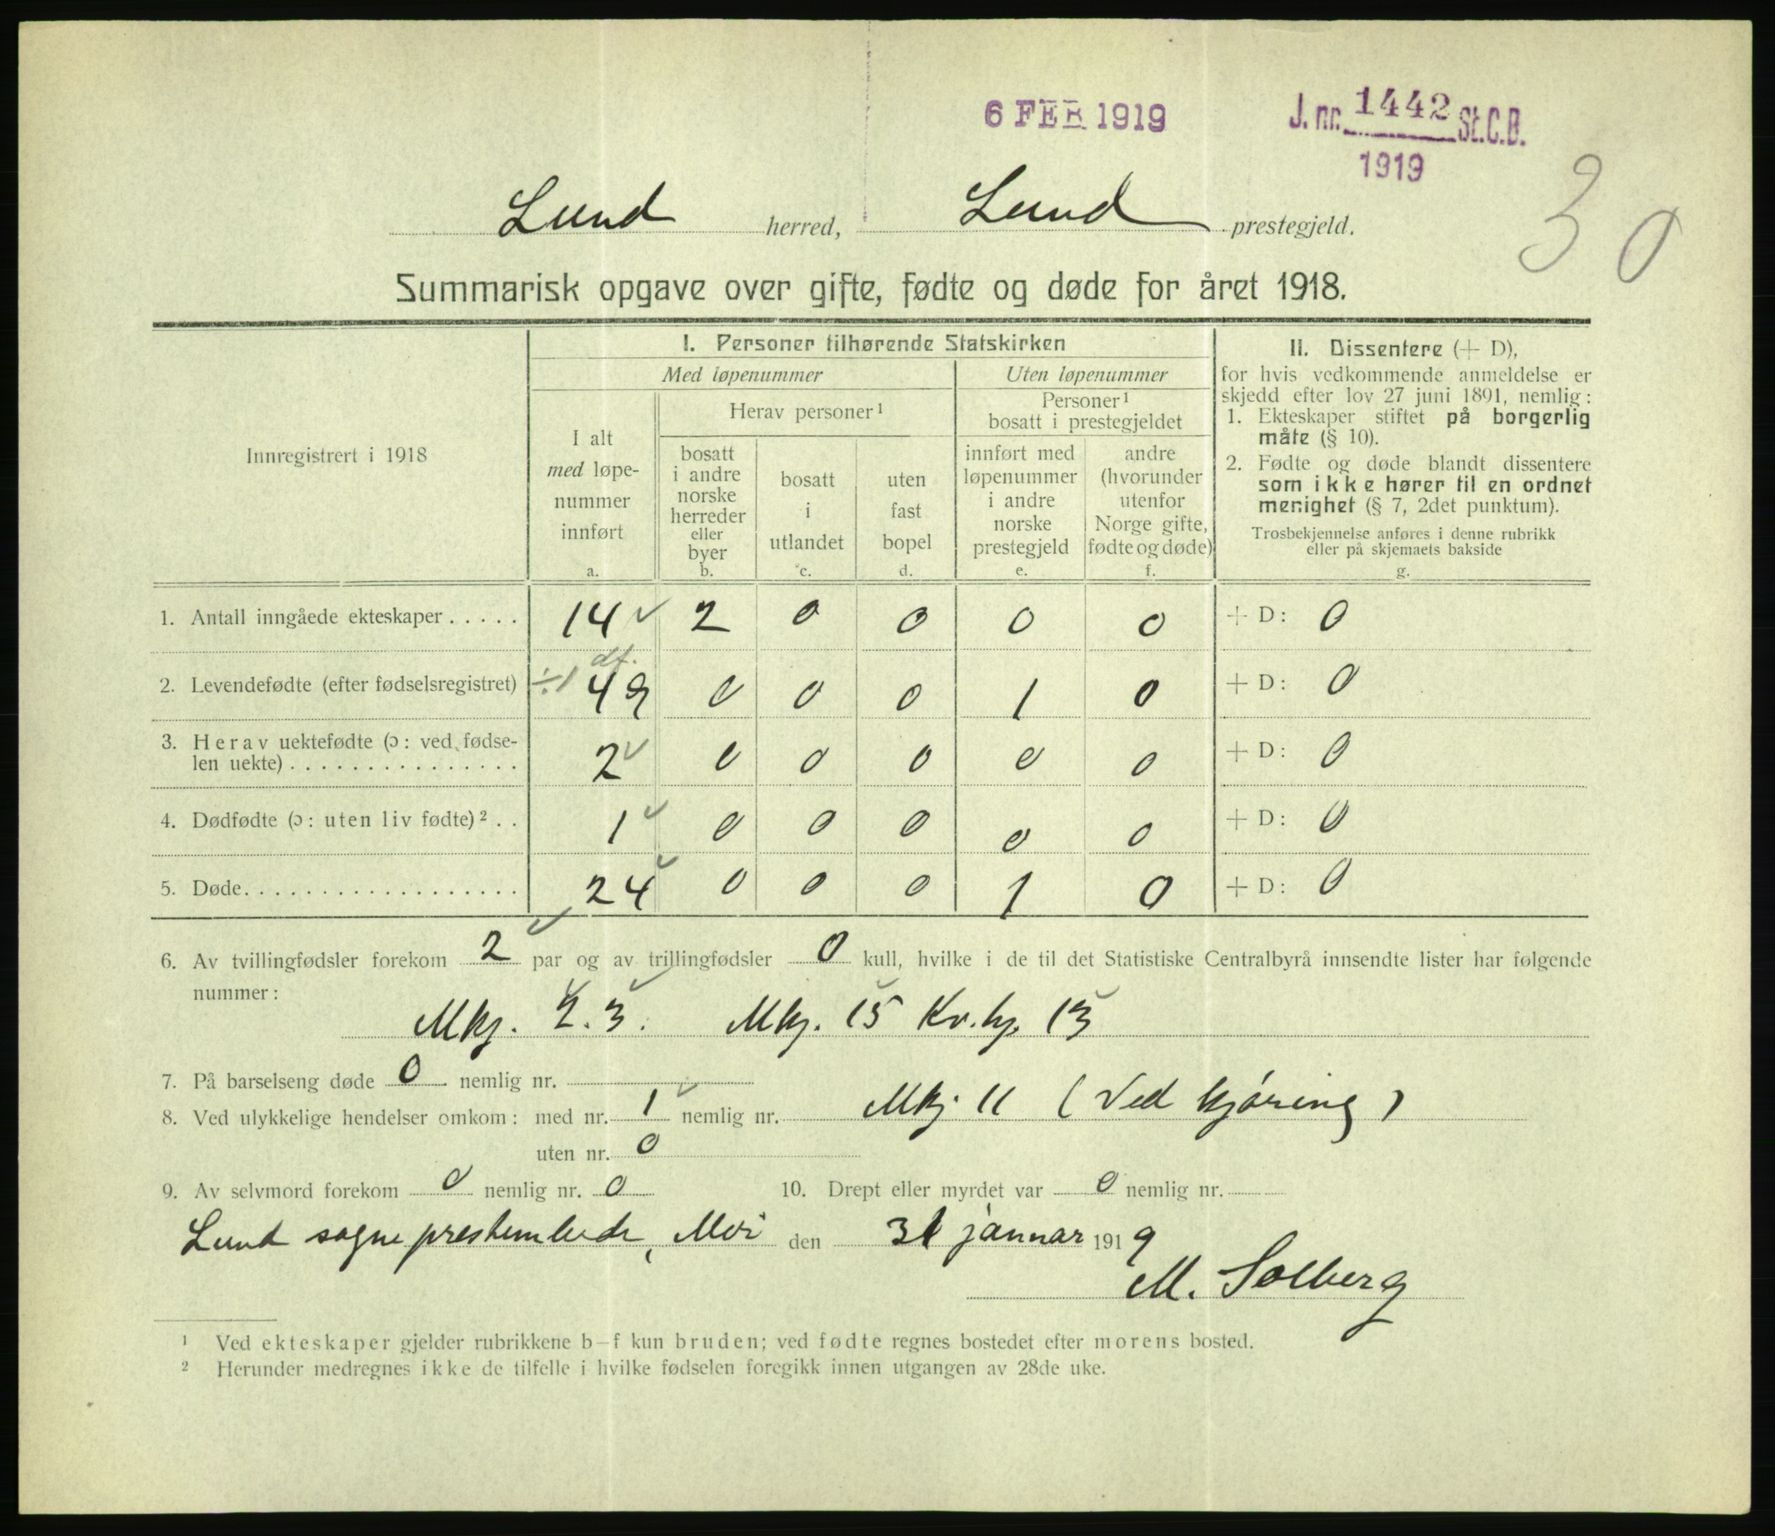 6 FEB 1919
J. nr. 1442 St.C.B.
1919
30
Lund herred, Lund prestegjeld.
Summarisk opgave over gifte, fødte og døde for året 1918.
Innregistrert i 1918
I. Personer tilhørende Statskirken
Med løpenummer
Uten løpenummer
I alt
med løpe-
nummer
innført
a.
Herav personer ¹
bosatt
i andre
norske
herreder
eller
byer
b.
bosatt
i
utlandet
c.
uten
fast
bopel
d.
Personer ¹
bosatt i prestegjeldet
innført med
løpenummer
i andre
norske
prestegjeld
e.
andre
(hvorunder
utenfor
Norge gifte,
fødte og døde)
f.
II. Dissentere (+ D),
for hvis vedkommende anmeldelse er
skjedd efter lov 27 juni 1891, nemlig:
1. Ekteskaper stiftet på borgerlig
måte (§ 10).
2. Fødte og døde blandt dissentere
som ikke hører til en ordnet
menighet (§ 7, 2det punktum).
Trosbekjennelse anføres i denne rubrikk
eller på skjemaets bakside
g.
1. Antall inngåede ekteskaper . . . . . 14 ✓ 2 0 0 0 0 + D: 0
df.
2. Levendefødte (efter fødselsregistret) ÷1 49 0 0 0 1 0 + D: 0
3. Herav uektefødte (ɔ: ved fødse-
len uekte) . . . . . . . . . . . . . . . 2 ✓ 0 0 0 0 0 + D: 0
4. Dødfødte (ɔ: uten liv fødte) ² . . 1 ✓ 0 0 0 0 0 + D: 0
5. Døde. . . . . . . . . . . . . . . . . . 24 ✓ 0 0 0 1 0 + D: 0
6. Av tvillingfødsler forekom 2 ✓ par og av trillingfødsler 0 kull, hvilke i de til det Statistiske Centralbyrå innsendte lister har følgende
nummer:
Mkj. 2. 3. Mkj. 15 Kv.kj. 13
7. På barselseng døde 0 nemlig nr.
8. Ved ulykkelige hendelser omkom: med nr. 1 ✓ nemlig nr. Mkj. 11 (Ved kjøring)
uten nr. 0
9. Av selvmord forekom 0 nemlig nr. 0 10. Drept eller myrdet var 0 nemlig nr.
Lund sogneprestembede, Moi den 31 januar 1919
M. Solberg
¹ Ved ekteskaper gjelder rubrikkene b–f kun bruden; ved fødte regnes bostedet efter morens bosted.
² Herunder medregnes ikke de tilfelle i hvilke fødselen foregikk innen utgangen av 28de uke.